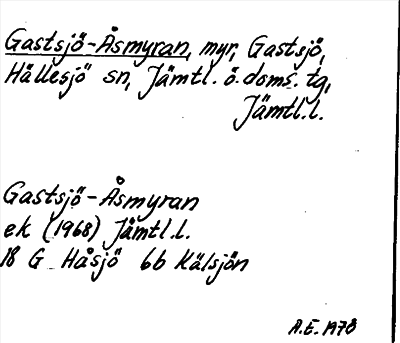 Gastsjö-Åsmyran, myr, Gastsjö,
Hällesjö sn, Jämtl. ö. doms. tg,
Jämtl.l.
Gastsjö-Åsmyran
ek (1968) Jämtl.l.
18 G Håsjö 6b Kälsjön
A.E. 1978